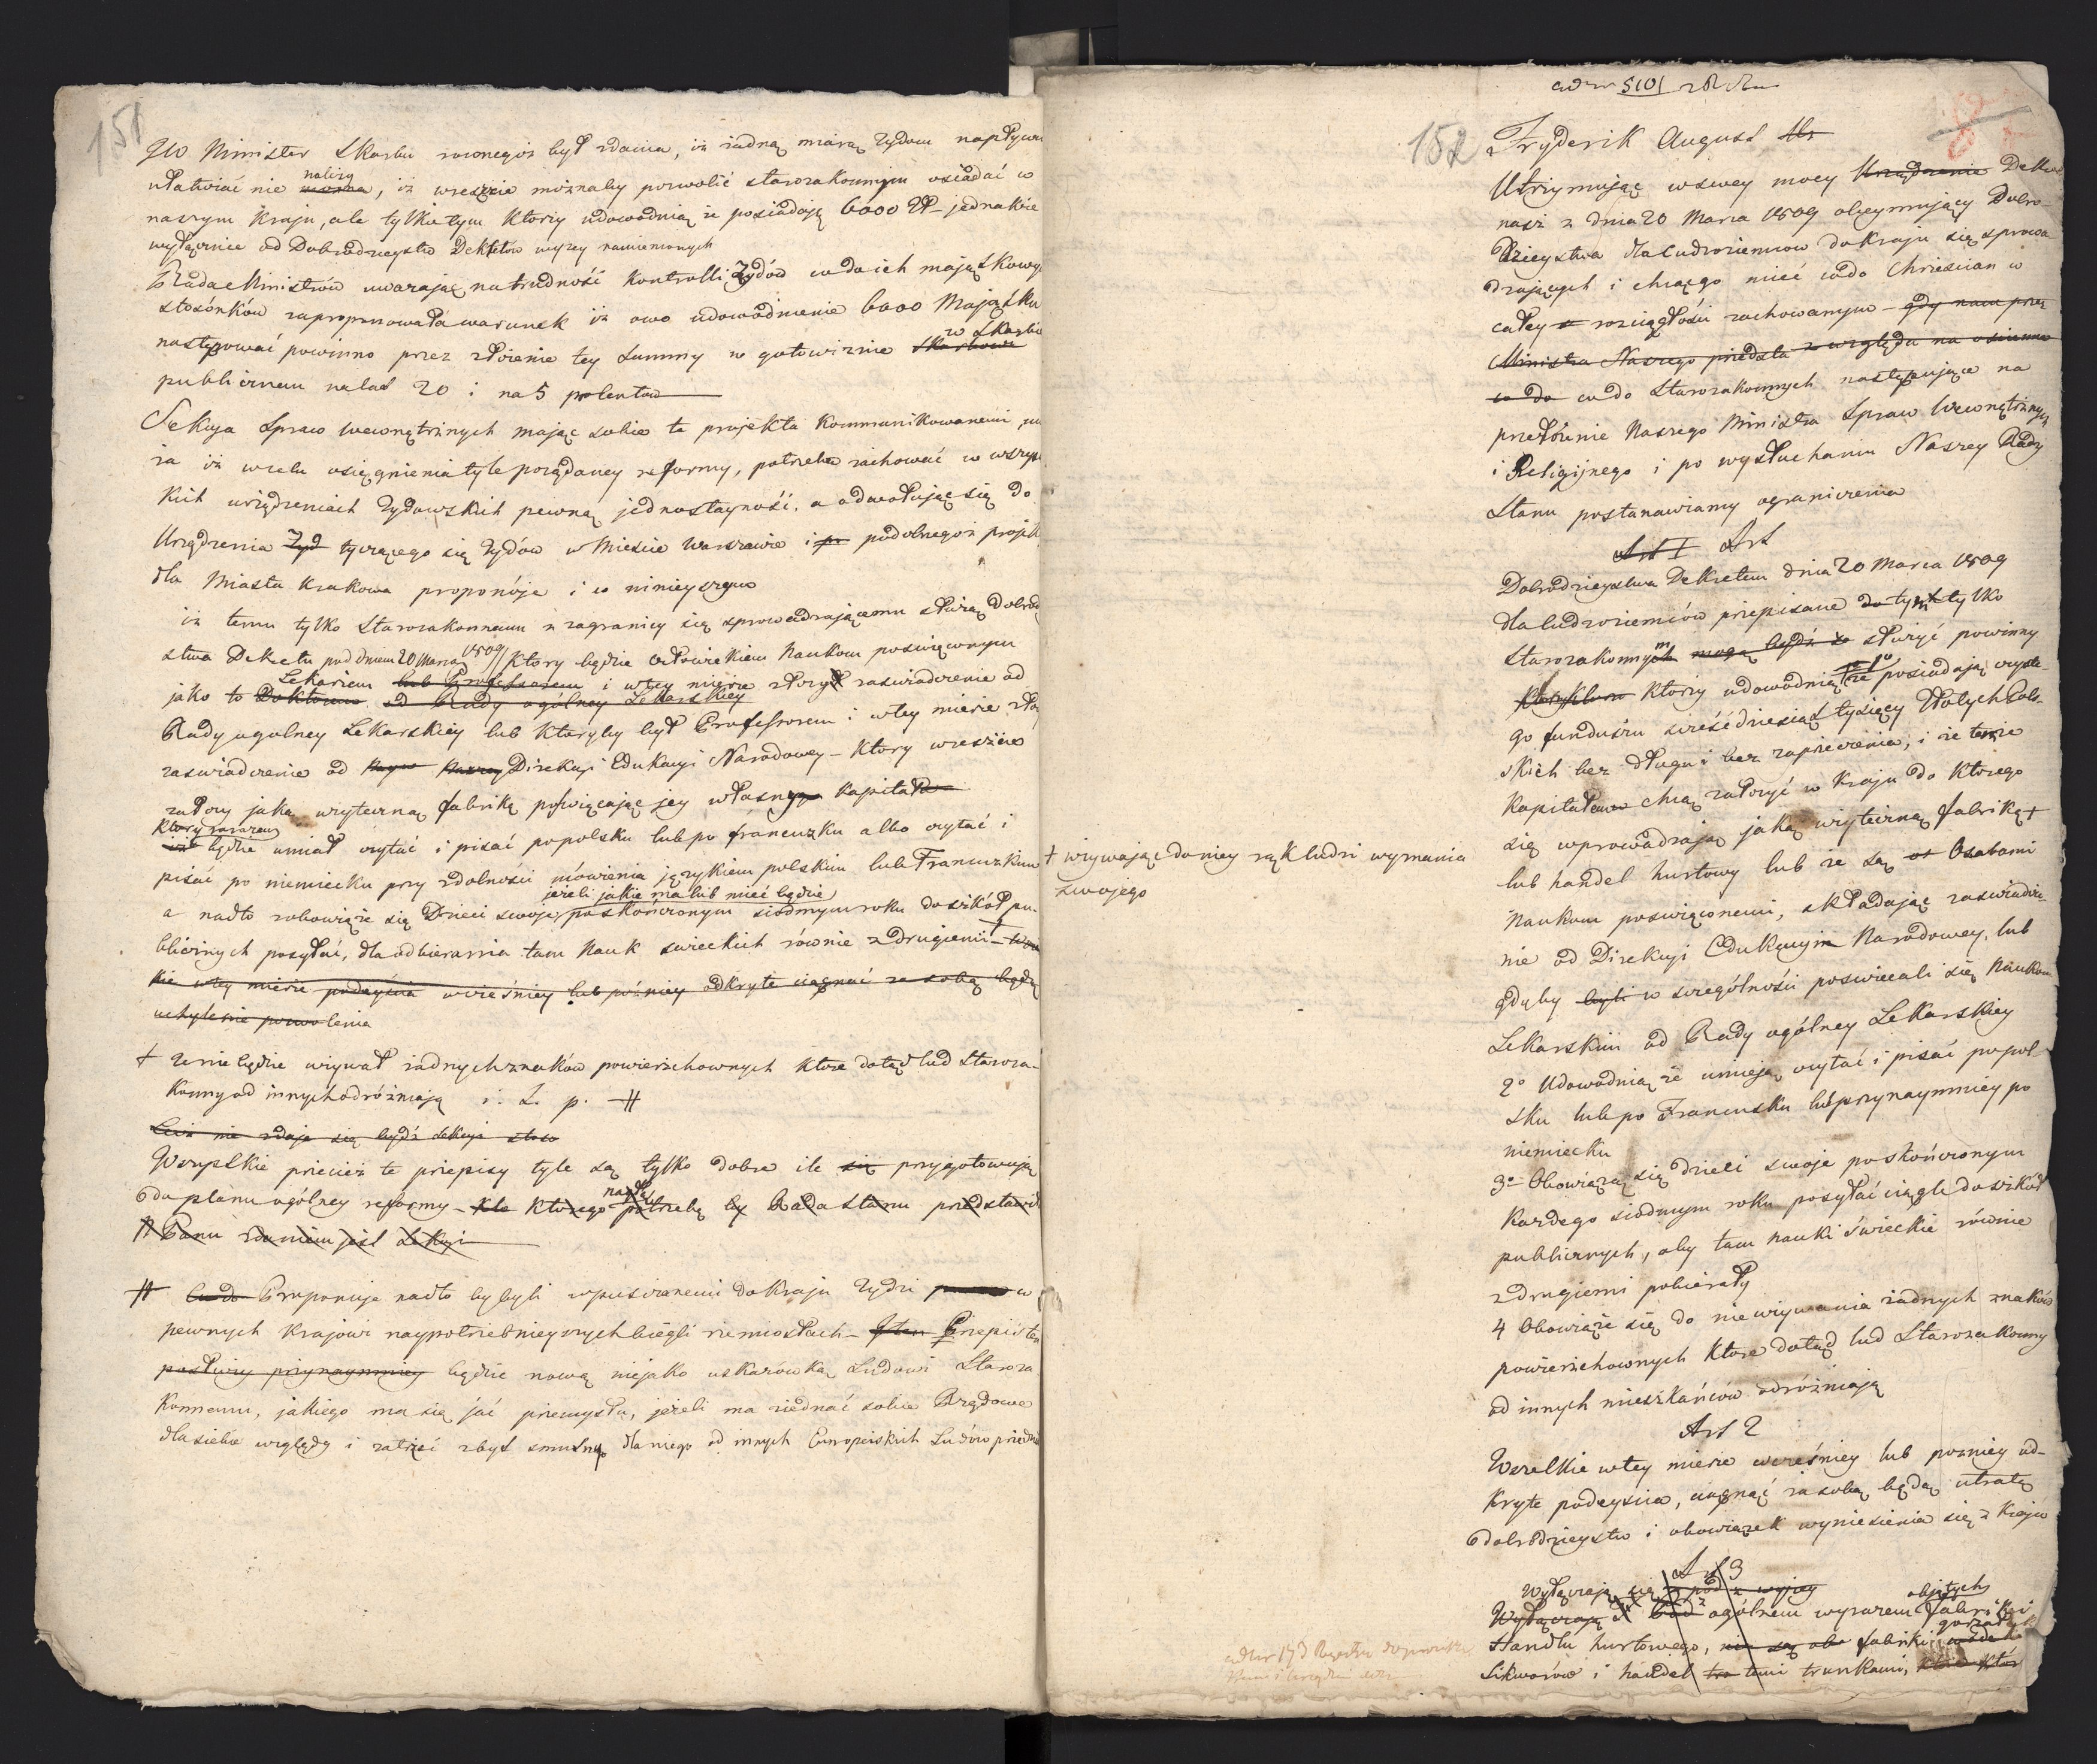 151
JW Minister Skarbu swoneguż był zdania, iż żadną miarą Żydom napływu
ułatwiać nie należy można, iż wreszcie możnaby pozwolić starozakonnym osiadać w
naszym kraju, ale tylko tym którzy udowodnią że posiadają 6000 Zł – jednakże
wyłącznie od Dobrodzieystw Dekretów wyzey namienionych
Rada Ministrów uważając na trudność kontrolli Żydów co do ich majątkowych
stosónków zaproponowała warunek iż owo udowodnienie 6000 Majątku
następować powinno przez złożenie tey Summy w gotowiznie Skarbowi w Skarbie
publicznem na lat 20 i na 5 procentow
Sekcya Spraw Wewnętrznych mając sobie te projekta kommunikowanemi, uw
ża iż w celu osięgnienia tyle porządaney reformy, potrzeba zachować w wszyst
kich urządzeniach Żydowskich pewną jednostayność, a odwołując się do
Urządzenia Żyd tyczącego się Żydów w Mieście Warszawie i po podobnegoż projekt
dla Miasta Krakowa proponóje i w ninieyszym
iż temu tylko Starozakonnemu z zagranicy się sprowadzającemu służą dobrod
stwa Dekretu pod dniem 20 Marca 1809 który będzie człowiekiem Naukom poswięconym
jako to Doktorem Lekarzem lub Professorem i w tey mierze złoży zaswiadczenie od
od Rady ogólney Lekarskiey
Rady ogulney Lekarskiey lub któryby był Professorem i w tey mierze zło
zaswiadczenie od Naszey Direkcyi Edukacyi Narodowey – który wreszcie
założy jaką uzyteczną fabrikę poswięcając jey własny kapitał
który zarazem
będzie umiał czytać i pisać po polsku lub po francuzku albo czytać i
pisać po niemiecku przy zdolności mówienia językiem polskim lub Francuzkim
jeżeli jakie ma lub mieć będzie
a nadto zobowiąże się Dzieci swoje po skończonym siodmym roku do szkół pu-
blicznych posyłać, dla odbierania tam Nauk swieckich równie z drugiemi
kie w tey mierze podeyścia wcześniey lub późniey odkryte ciągnąć za sobą będą
uchylenie pozwolenia
† że nie będzie używał żadnych znaków powierzchownych które dotąd lud Staroza-
konny od innych odróżniają i. t. p. ⧺
Lecz nie zdaje się bydź Sekcyi
Wszystkie przecież te przepisy tyle są tylko dobre ile się przygotowują
do planu ogólney reformy – którego nagłą potrzebę by Rada Stanu przedstawiła
Panu zdaniem jest Sekcyi
⧺ Proponuje nadto by byli wpuszczonemi do kraju Żydzi w
pewnych krajowi naypotrzebnieyszych biegli rzemiosłach – Przepis ten
posłuży przynaymniey będzie nową niejako wskazówką Ludowi Staroza
konnemu, jakiego ma się jąć przemysłu, jeżeli ma ziednać sobie Rządowe
dla siebie względy i zatrzeć zbyt smutną dla niego od innych Europeiskich Ludów
5101
152
Fryderik August
Utrzymując w swey mocy Urządzenie Dekret
nasz z dnia 20 Marca 1809 obeymujący Dobro-
dzieystwa dla Cudzoziemców do kraju się sprowa-
dzających i chcąc go mieć co do Chrzescian w
całey rozciągłości zachowanym – gdy nam przez
Ministra Naszego przedsta względu na osienie
co do co do Starozakonnych następujące na
przełóżenie Naszego Ministra Spraw Wewnętrznych
i Religijnego i po wysłuchaniu Naszey Rady
Stanu postanawiamy ograniczenia
Art I Art
Dobrodzieystwa Dekretem dnia 20 Marca 1809
dla Cudzoziemców przepisane do tym tylko
Starozakonnym mogą bydź służyć powinny
którzy udowodnią 1° że posiadają czyste-
go funduszu sześćdziesiąt tysięcy Złotych Pols-
kich bez długu i bez zaprzeczenia, i że temże
Kapitałem chcą założyć w kraju do którego
się wprowadzają jaką użyteczną fabrikę †
† używając do niey rąk ludzi wyznania
swojego
lub handel hurtowy lub że są Osobami
Naukom poswięconemi, składając zaswiadcze-
nie od Direkcyi Edukacyi Narodowey, lub
gdyby byli w szególności poswiecali się Naukom
Lekarskim od Rady ogólney Lekarskiey
2° Udowodnią że umieją czytać i pisać po pol-
sku lub po Francusku lub przynaymniey po
niemiecku
3° Obowiązą się dzieci swoje po skończonym
każdego siodmym roku posyłać ciągle do szkół
publicznych, aby tam nauki świeckie równie
z drugiemi pobierały
4 Obowiąże się do nieużywania żadnych znaków
powierzchownych które dotąd lud Starozakonny
od innych mieszkańców odróżniają
Art 2
Wszelkie w tey mierze wcześniey lub pozniey od-
kryte podeyscia, ciągnąć za sobą będą utratę
dobrodzieystw i obowiązek wyniesienia się z Kraju
Art 3
Wyłączają się pod
Wyłączają ogólnem wyrazem objętych fabriki
Handlu hurtowego, fabriki gorzałek wódek
Likworów i handel temi trunkami,